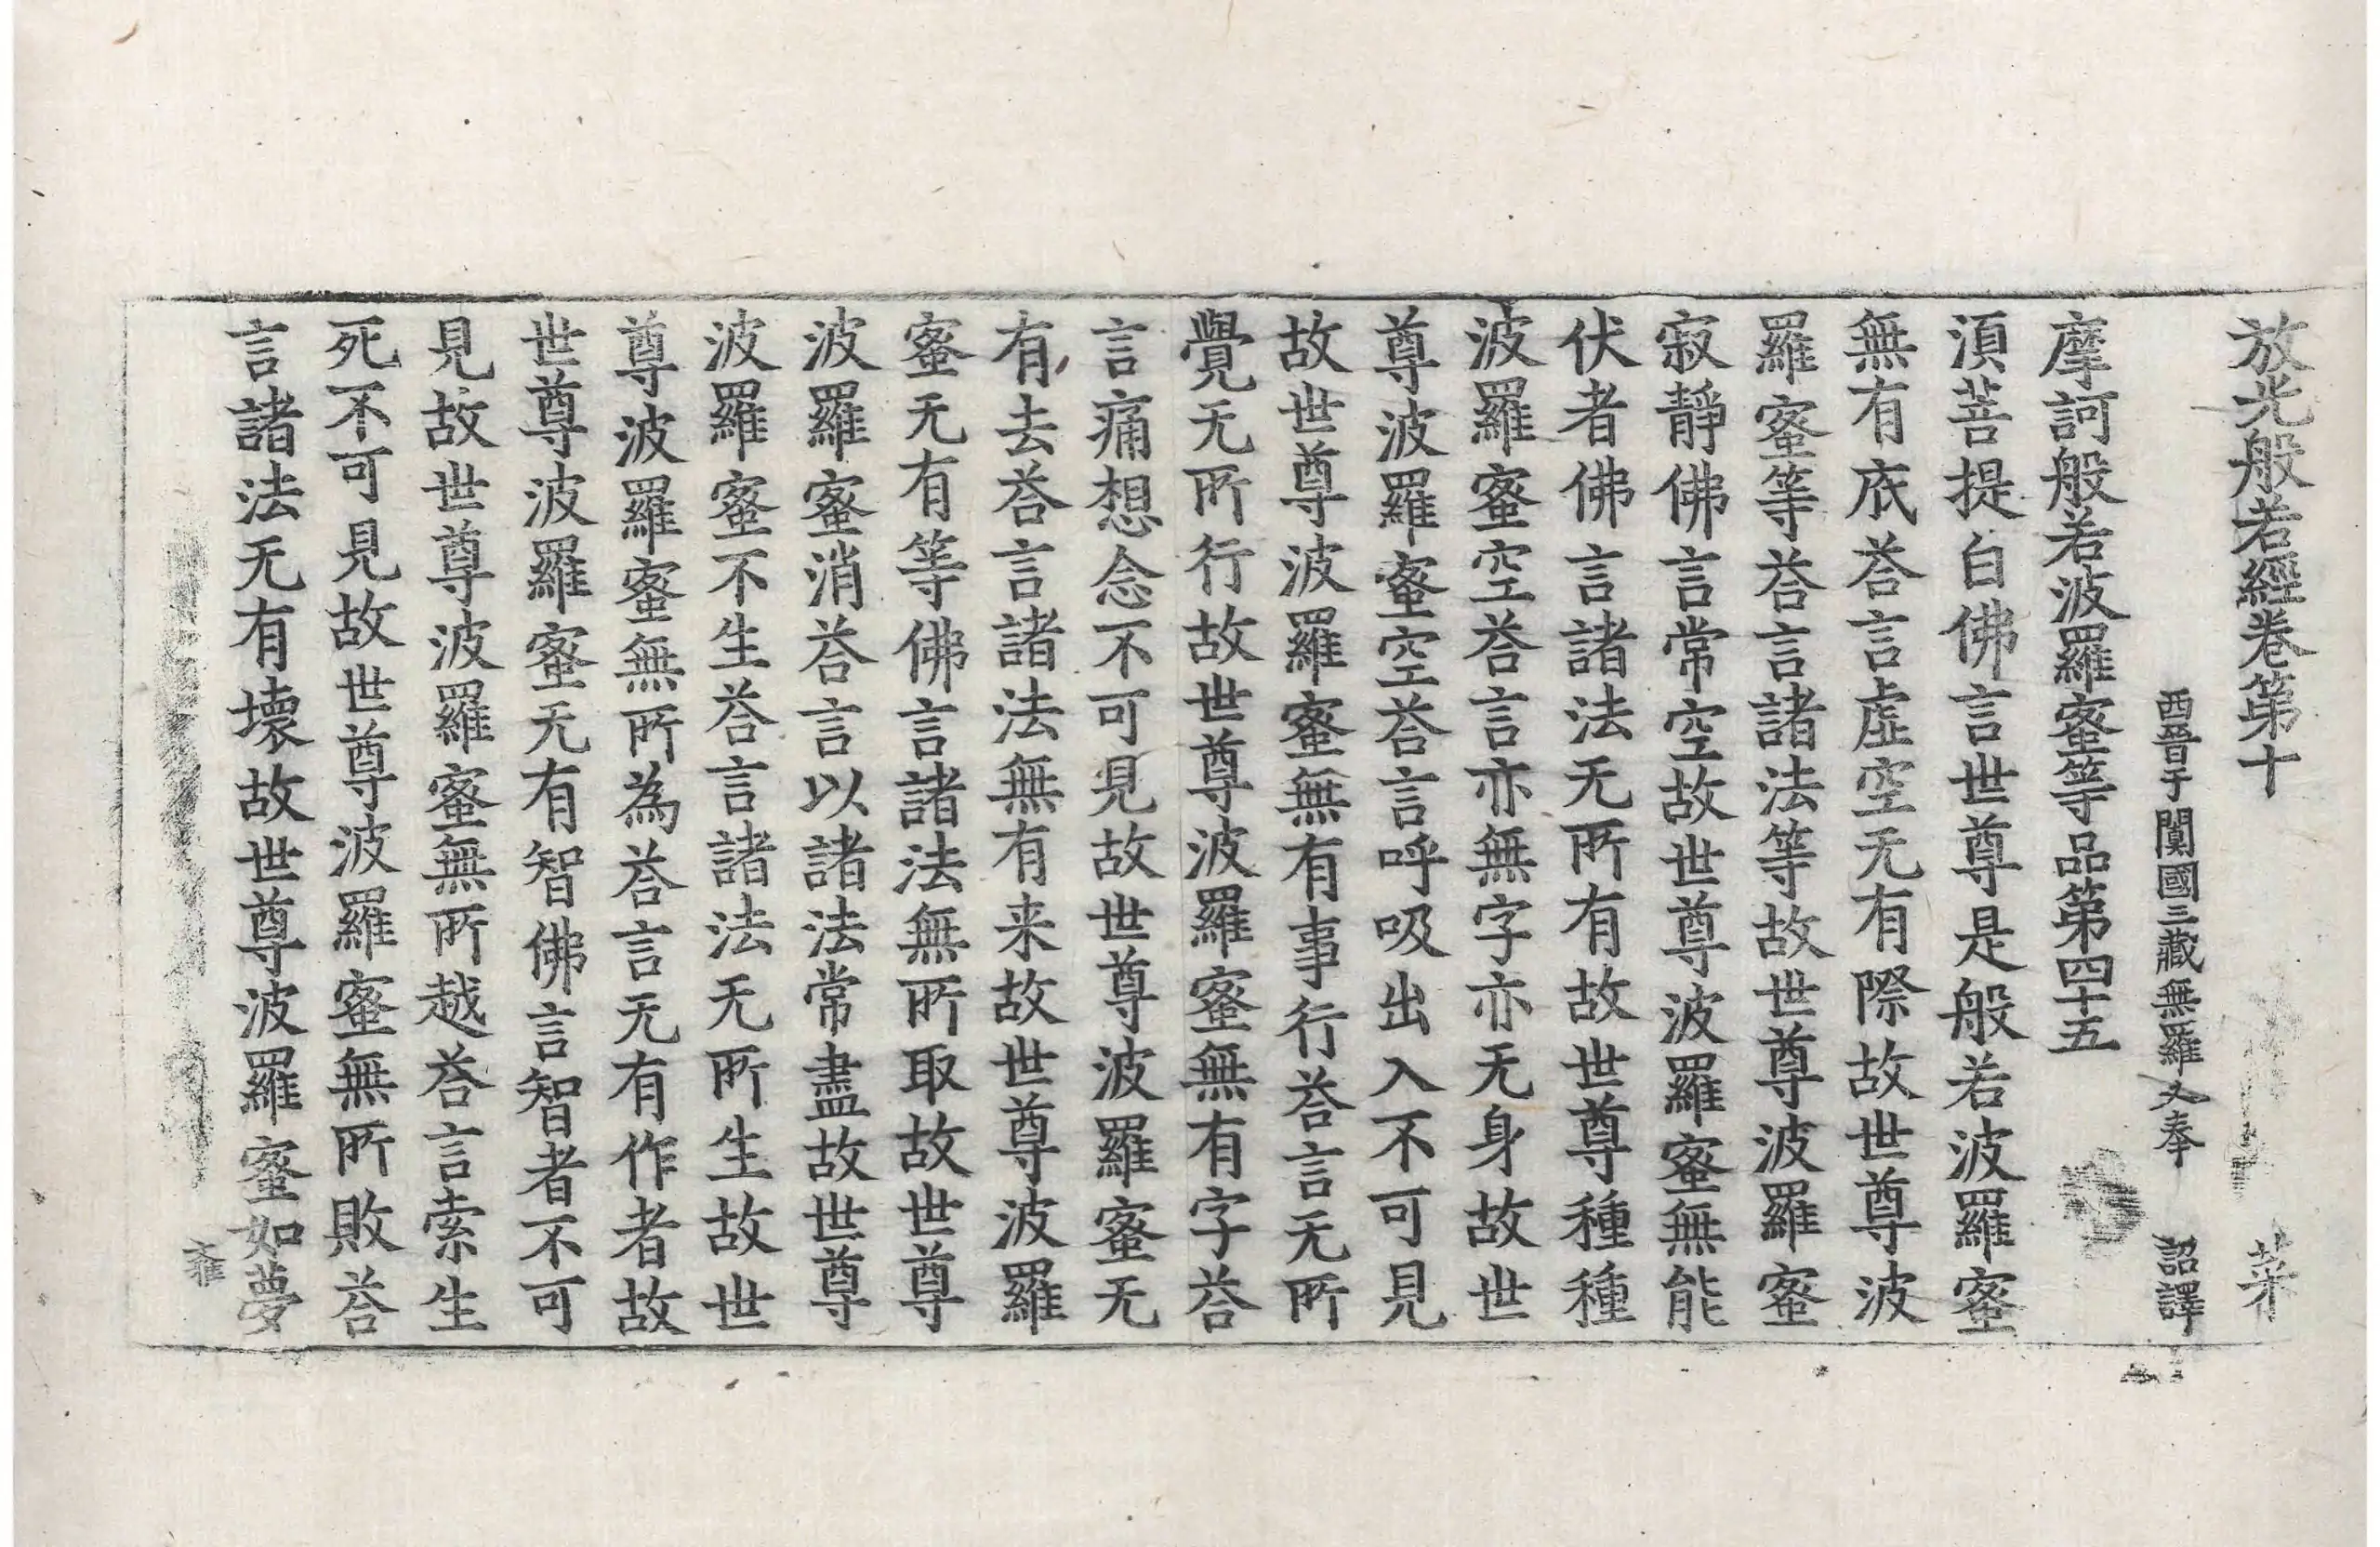 放光般若經卷第十 菜
西晉于闐國三藏無羅叉奉 詔譯
摩訶般若波羅蜜等品第四十五
湏菩提白佛言世尊是般若波羅蜜
無有底荅言虛空无有際故世尊波
羅蜜等荅言諸法等故世尊波羅蜜
寂靜佛言常空故世尊波羅蜜無能
伏者佛言諸法无所有故世尊種種
波羅蜜空荅言亦無字亦无身故世
尊波羅蜜空荅言呼吸出入不可見
故世尊波羅蜜無有事行荅言无所
覺无所行故世尊波羅蜜無有字荅
言痛想念不可見故世尊波羅蜜无
有去荅言諸法無有来故世尊波羅
蜜无有等佛言諸法無所取故世尊
波羅蜜消荅言以諸法常盡故世尊
波羅蜜不生荅言諸法无所生故世
尊波羅蜜無所為荅言无有作者故
世尊波羅蜜无有智佛言智者不可
見故世尊波羅蜜無所越荅言索生
死不可見故世尊波羅蜜無所敗荅
言諸法无有壞故世尊波羅蜜如夢